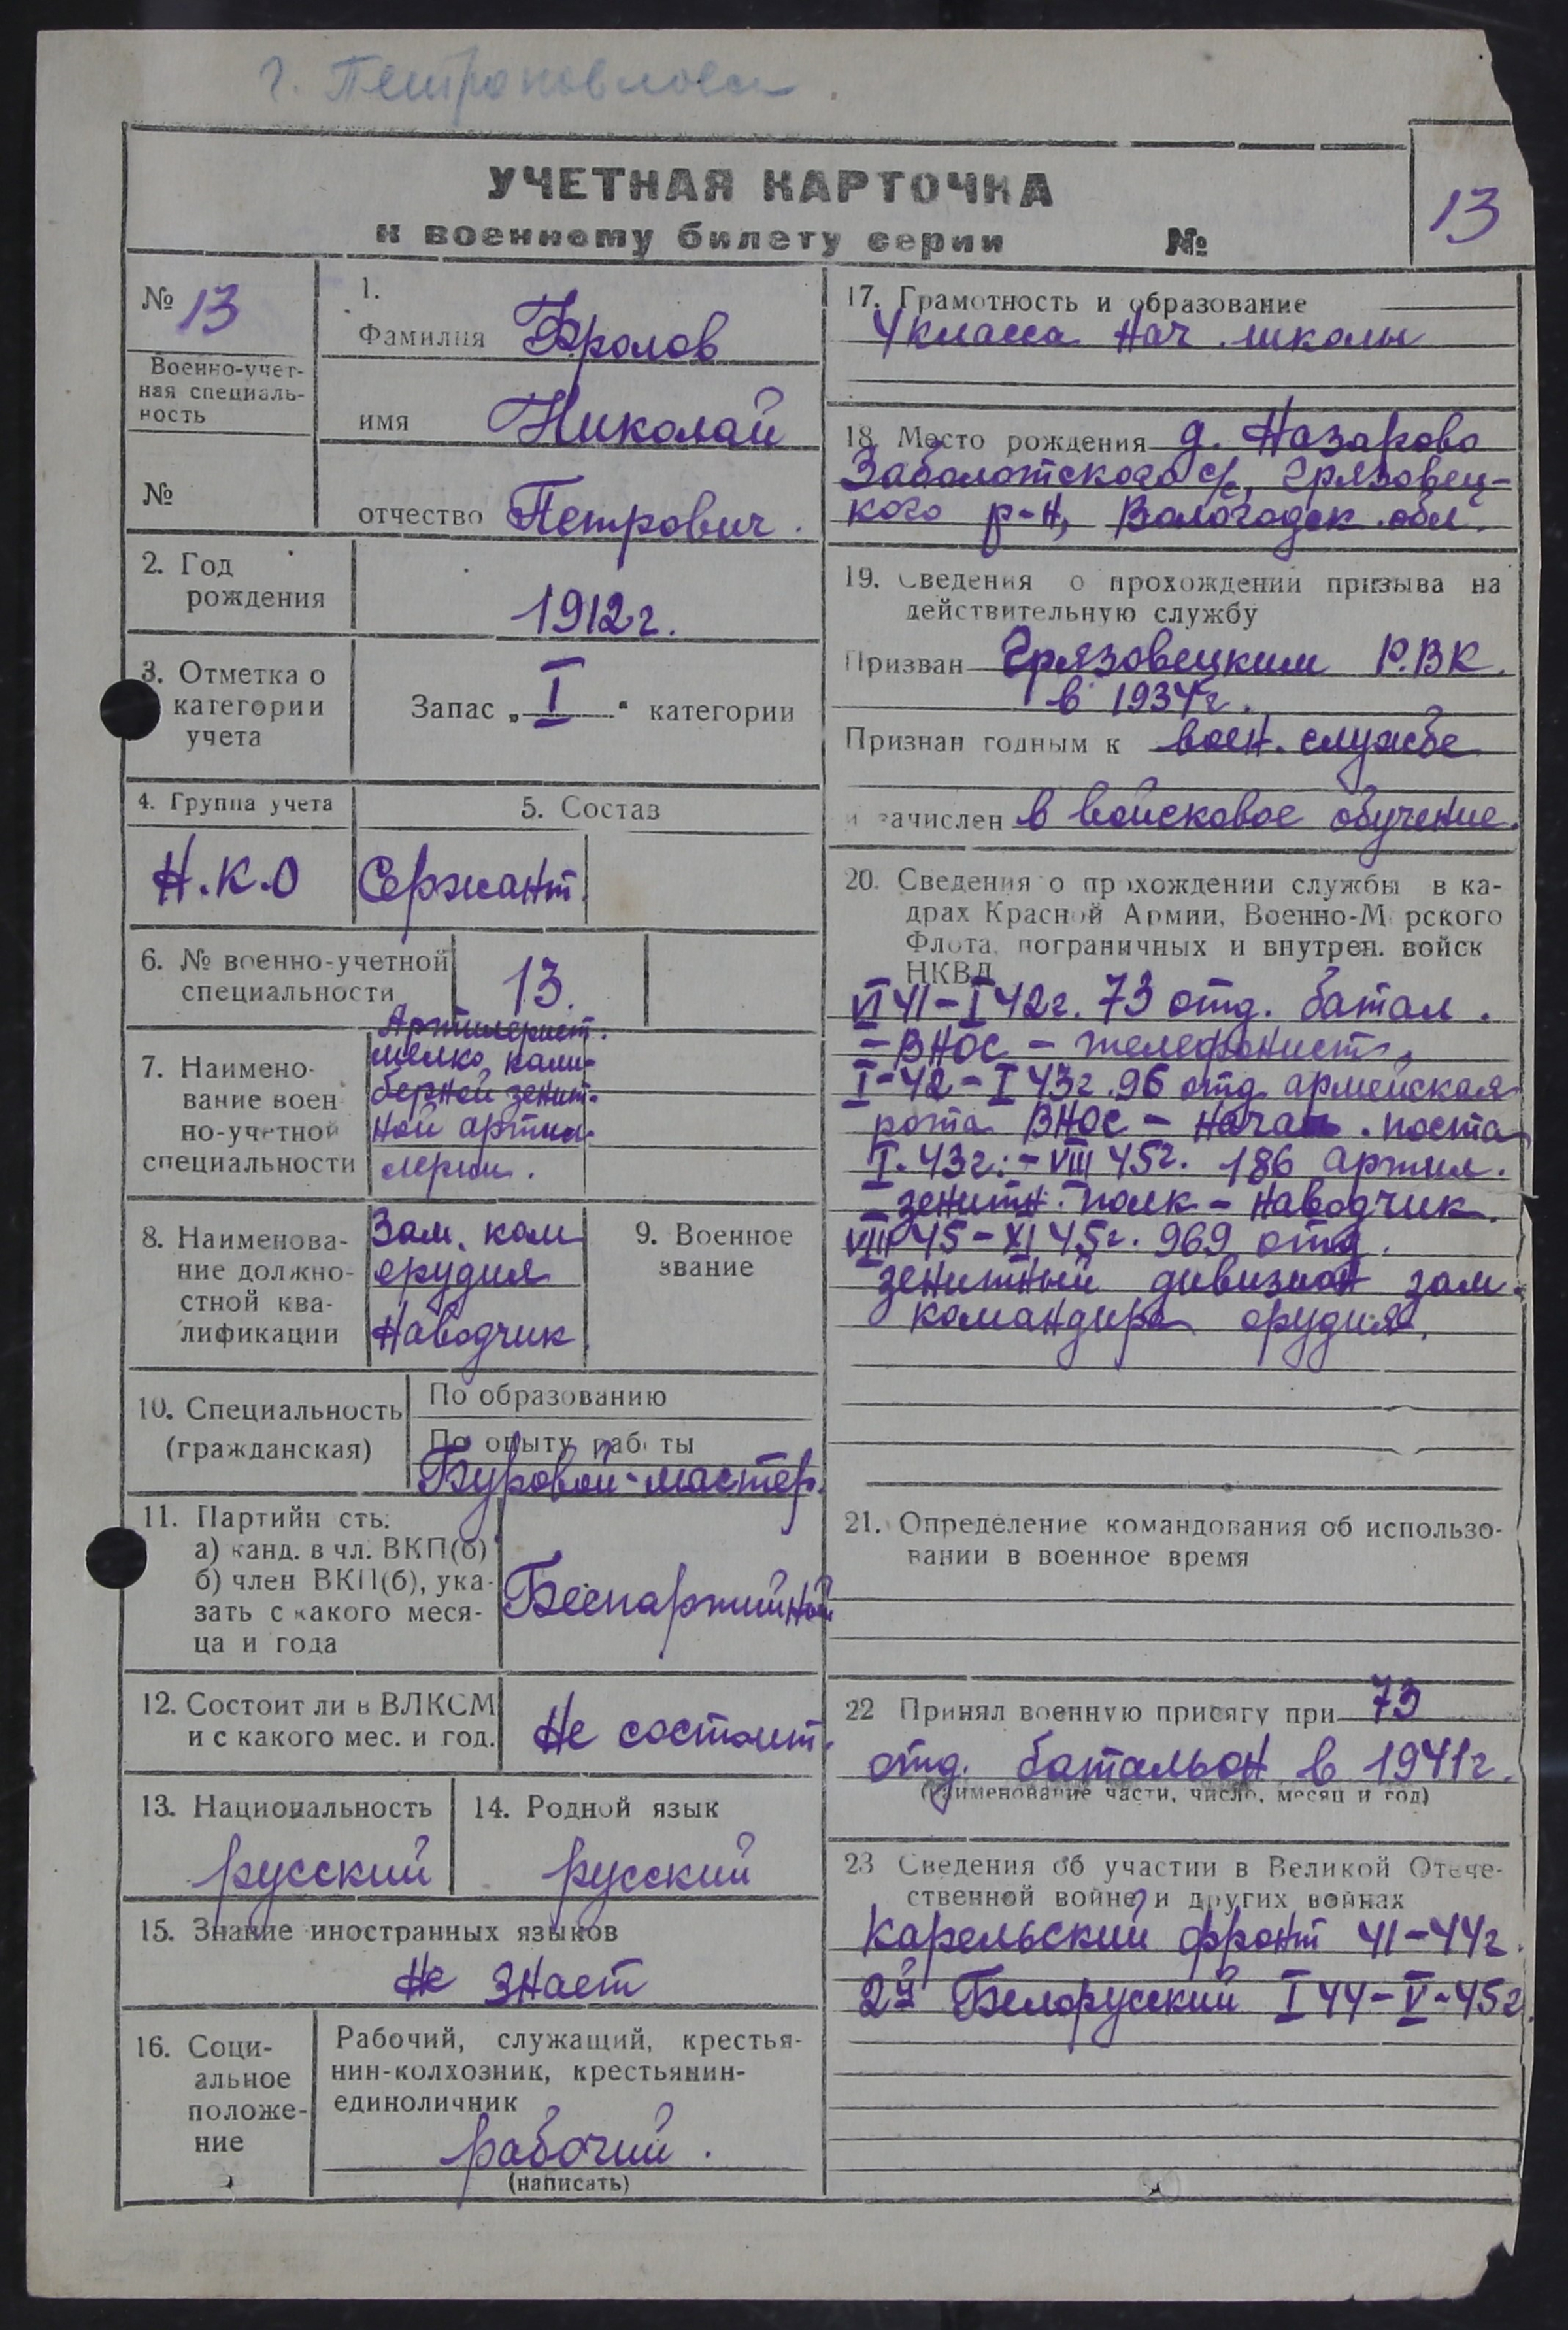 г. Петропавловск.
УЧЕТНАЯ КАРТОЧКА
к военному билету серии №
13
№ 13
Военно-учет-
ная специаль-
ность
№
1.
Фамилия Фролов
имя Николай
отчество Петрович.
2. Год
рождения
1912 г.
3. Отметка о
категории
учета
Запас „ I " категории
4. Группа учета
Н.К.О
5. Состав
Сержант.
6. № военно-учетной
специальности
13.
7. Наимено-
вание воен
но-учетной
специальности
Артилерист.
мелко кали-
берной зенит-
ной артил-
лерии.
8. Наименова-
ние должно-
стной ква-
лификации
Зам. ком
орудия
Наводчик
9. Военное
звание
10. Специальность
(гражданская)
По образованию
По опыту работы
Буровой-мастер.
11. Партийн сть.
а) канд. в чл. ВКП(б)
б) член ВКП(б), ука-
зать с какого меся-
ца и года
Беспартийной
12. Состоит ли в ВЛКСМ
и с какого мес. и год.
Не состоит.
13. Национальность
русский
14. Родной язык
русский
15. Знание иностранных языков
Не знает
16. Соци-
альное
положе-
ние
Рабочий, служащий, крестья-
нин-колхозник, крестьянин-
единоличник
рабочий.
(написать)
17. Грамотность и образование
4 класса нач. школы
18. Место рождения д. Назарово
Заболотского с/с, Грязовец-
кого р-н, Вологодск. обл.
19. Сведения о прохождении призыва на
действительную службу
Призван Грязовецким Р.ВК.
в 1934 г.
Признан годным к воен. службе
и зачислен в войсковое обучение.
20. Сведения о прохождении службы в ка-
драх Красной Армии, Военно-М рского
Флота, пограничных и внутрен. войск
НКВД
VI 41 - I 42 г. 73 отд. батал.
- ВНОС - телефонист,
I-42 - I 43 г. 96 отд. армейская
рота ВНОС - начал. поста
I. 43 г. - VIII 45 г. 186 артил.
зенитн. полк - наводчик.
VIII 45 - XI 45 г. 969 отд.
зенитный дивизион зам.
командира орудия.
21. Определение командования об использо-
вании в военное время
22 Принял военную присягу при 73
отд. батальон в 1941 г.
(наименование части, число, месяц и год)
23 Сведения об участии в Великой Отече-
ственной войне и других войнах
Карельский фронт 41-44 г.
2й Белорусский I 44 - V-45 г.